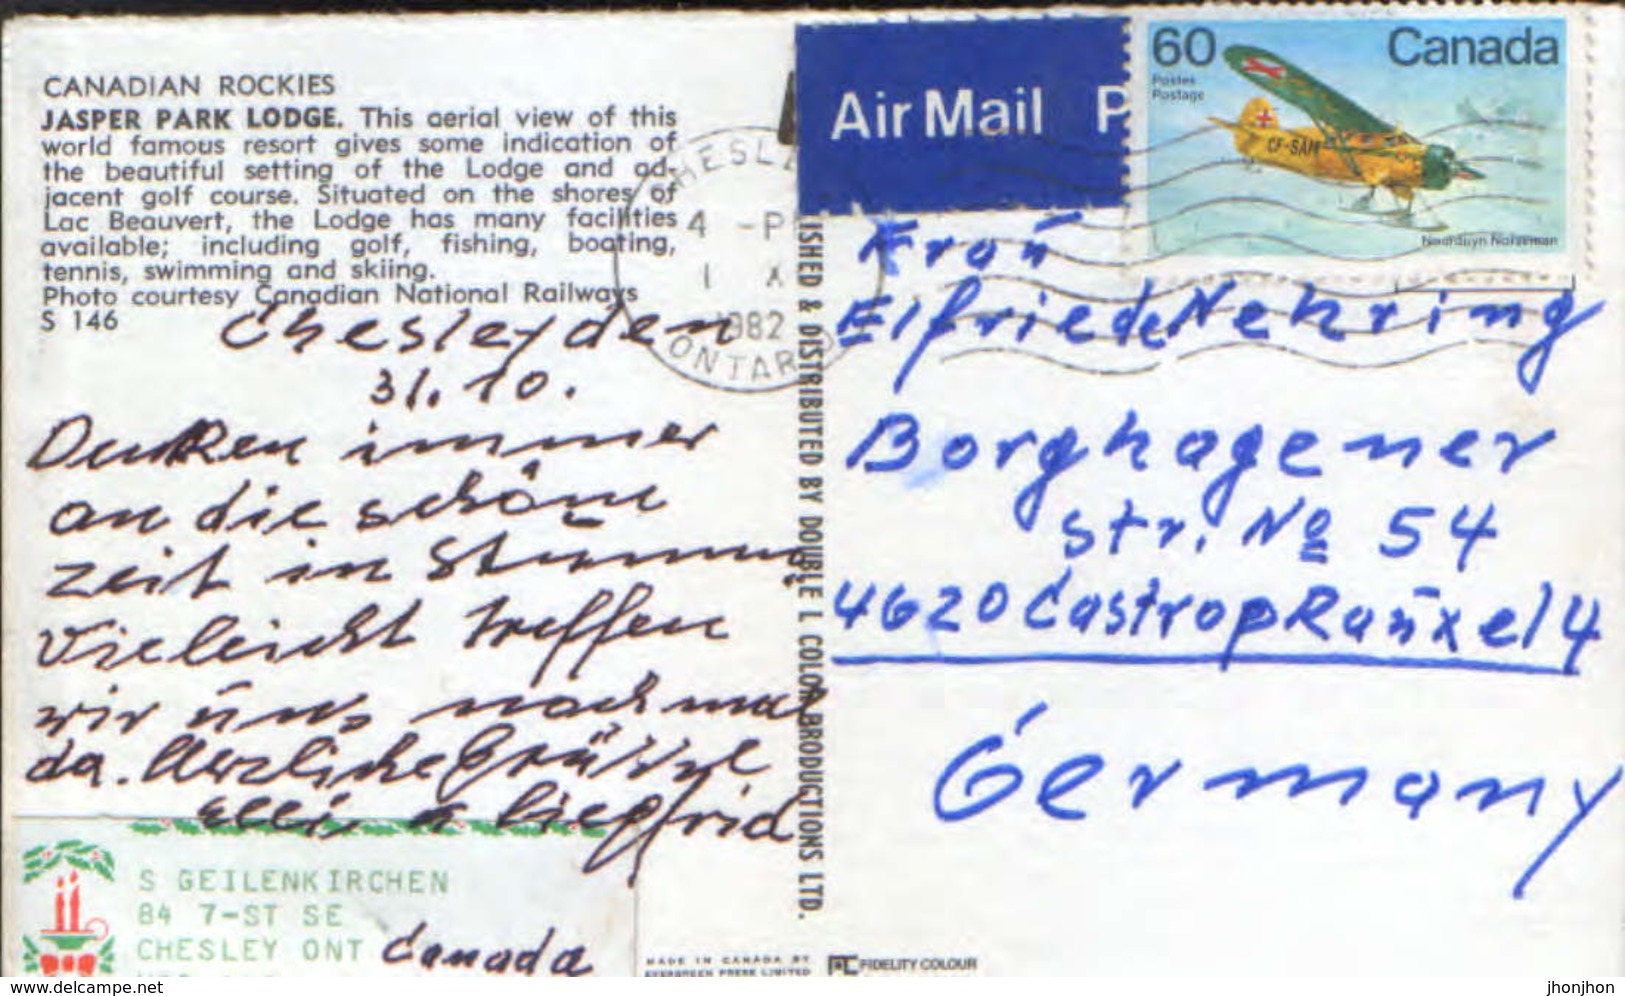 CANADIAN ROCKIES
JASPER PARK LODGE. This aerial view of this
world famous resort gives some indication of
the beautiful setting of the Lodge and ad-
jacent golf course. Situated on the shores of
Lac Beauvert, the Lodge has many facilities
available; including golf, fishing, boating,
tennis, swimming and skiing.
Photo courtesy Canadian National Railways
S 146
Chesley den
31. 10.
Denken immer
an die schöne
zeit in
Vieleicht treffen
wir uns nochmal
da. Herzliche Grüsse
Elli u Siegfrid
S GEILENKIRCHEN
84 7-ST SE
CHESLEY ONT Canada
4 -P
1 X
1982
ONTAR
Air Mail P
60 Canada
Postes
Postage
CF-SAM
Noorduyn Norseman
ISHED & DISTRIBUTED BY DOUBLE L COLOR PRODUCTIONS LTD.
Frau
Elfriede Nehring
Borghagener
str. No 54
4620 Castrop Rauxel 4
Germany
MADE IN CANADA BY
EVERGREEN PRESS LIMITED
FIDELITY COLOUR
www.delcampe.net
jhonjhon